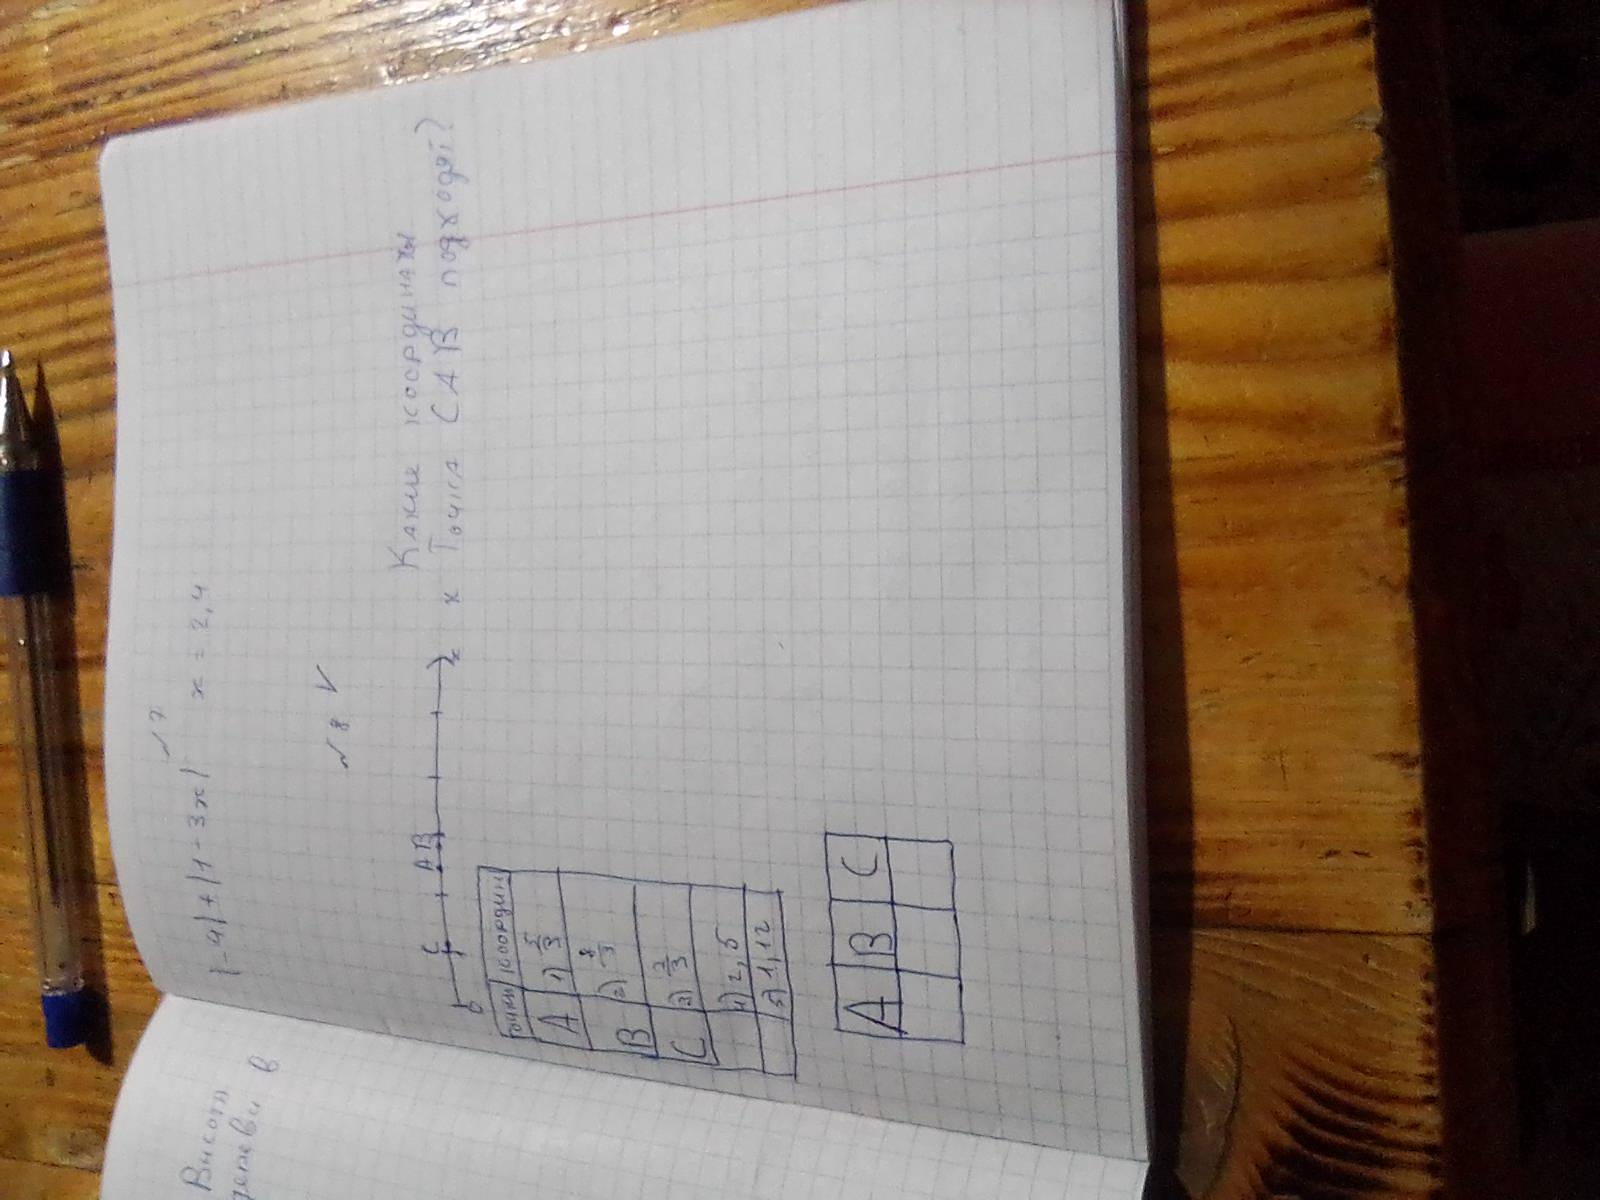 Высота
деревви в
№7
|-4|+|1-3x| x=2,4
№8 V
Какие координаты
0 C A B x x Точкл C A B подходят?
точки координ
A 1) 5/3
B 2) 8/3
C 3) 2/3
4) 2,5
5) 1,12
A B C